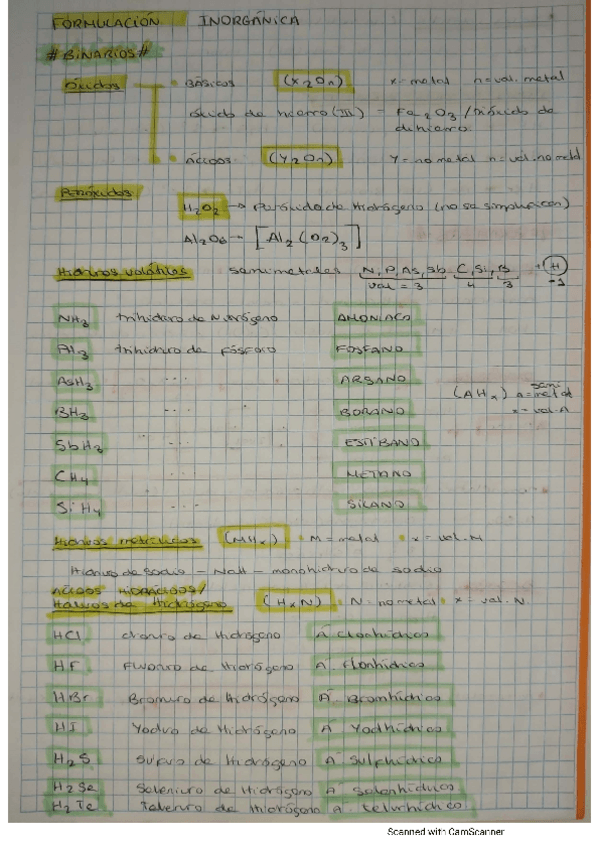 FORMULACIÓN INORGÁNICA
#BINARIOS#
Óxidos • BÁSICOS (X2On) x=metal n=val.metal
óxido de hierro (III) - Fe2O3 / trióxido de dihierro.
• ÁCIDOS (Y2On) Y=no metal n=val.no metal
Peróxidos
H2O2 → Peróxido de Hidrógeno (no se simplifican)
Al2O6 - [Al2(O2)3]
Hidruros volátiles semimetales N, P, As, Sb C, Si, B + H
val = 3 4 3 -1
NH3 trihidruro de Nitrógeno AMONIACO
PH3 trihidruro de fósforo FOSFANO
AsH3 ... ARSANO
(AHx) A=semimetal
x=val.A
BH3 ... BORANO
SbH3 ... ESTIBANO
CH4 ... METANO
SiH4 ... SILANO
Hidruros metálicos (MHx) • M=metal • x=val.M
Hidruro de Sodio - NaH - monohidruro de sodio
ÁCIDOS HIDRÁCIDOS/
Haluros de Hidrógeno (HxN) • N=no metal • x=val.N.
HCl cloruro de Hidrógeno Á Clorhídrico
HF Fluoruro de Hidrógeno Á Florhídrico
HBr Bromuro de Hidrógeno Á Bromhídrico
HI Yoduro de Hidrógeno Á Yodhídrico
H2S Sulfuro de Hidrógeno Á Sulphídrico
H2Se Seleniuro de Hidrógeno Á Selenhídrico
H2Te Teleruro de Hidrógeno Á telurhídrico
Scanned with CamScanner